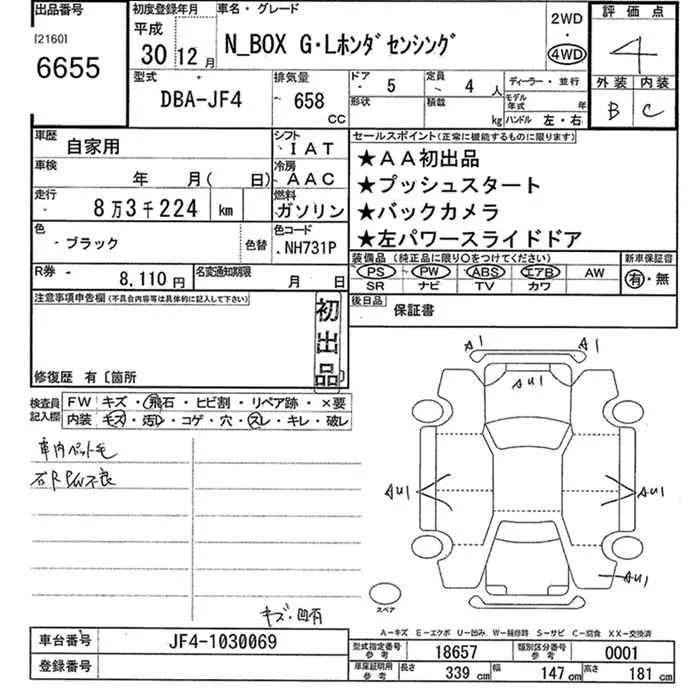 出品番号
[2160]
6655
初度登録年月
平成
30 12月
車名・グレード
N_BOX G・Lホンダセンシング
2WD
・
4WD
評価点
4
外装 内装
B C
型式
DBA-JF4
排気量
658
CC
ドア
5
形状
定員
4人
積載
kg
ディーラー・並行
モデル年式 年
ハンドル 左・右
車歴
自家用
シフト
IAT
車検
年 月( 日)
冷房
AAC
走行
8万3千224 km
燃料
ガソリン
色
ブラック
色替
色コード
NH731P
R券
8,110円
名変通知期限
月 日
セールスポイント(正常に機能するものに限ります)
★AA初出品
★プッシュスタート
★バックカメラ
★左パワースライドドア
装備品(純正品に限り〇をつけてください)
PS PW ABS エアB AW
SR ナビ TV カワ
新車保証書
有・無
後日品
保証書
注意事項申告欄(不具合内容等は具体的に記入して下さい)
初出品
修復歴 有〔箇所
検査員記入欄
FW キズ・飛石・ヒビ割・リペア跡・×要
内装 モズ・汚レ・コゲ・穴・スレ・キレ・破レ
車内ペット毛
右R PW不良
キズ・凹有
A1 A1
AU1
AU1 AU1
AU1
スペア
A-キズ E-エクボ U-凹み W-補修跡 S-サビ C-腐食 XX-交換済
車台番号
JF4-1030069
登録番号
型式指定番号
参考
18657
類別区分番号
参考
0001
車庫証明用
参考
長さ 339 cm 幅 147 cm 高さ 181 cm